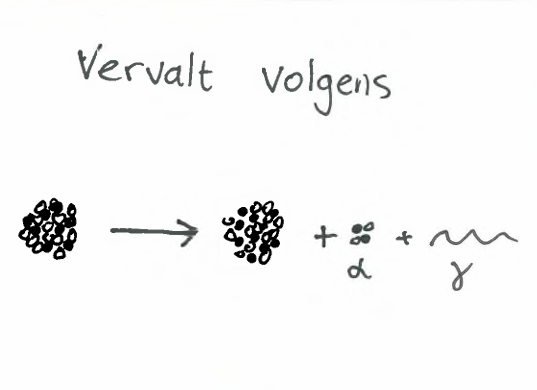 Vervalt volgens
+ + 
α γ